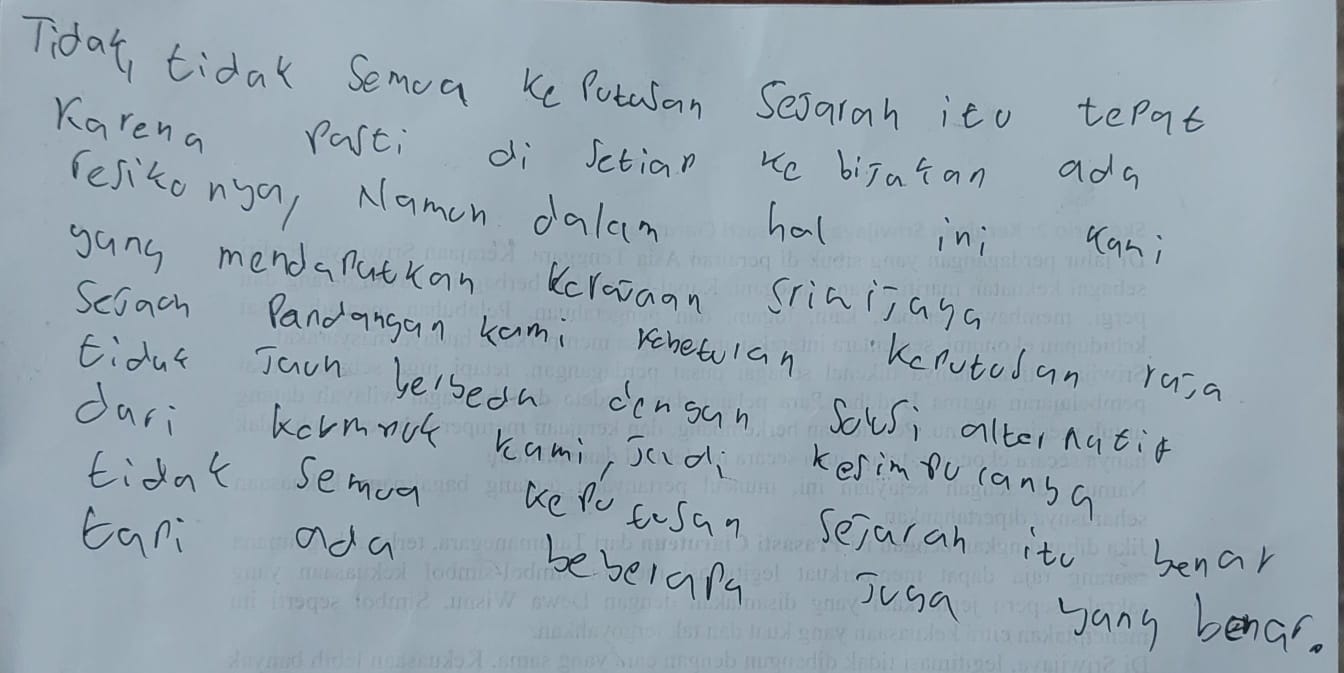 Tidak, tidak Semua keputusan Sejarah itu tepat
Karena pasti di setiap kebijakan ada
resikonya, Namun dalam hal ini kami
yang mendapatkan Kerajaan Sriwijaya
Sejauh Pandangan kami kebetulan keputusan raja
tidak jauh berbeda dengan Solusi alternatif
dari kelompok kami, Jadi kesimpulannya
tidak Semua keputusan sejarah itu benar
tapi ada beberapa juga yang benar.